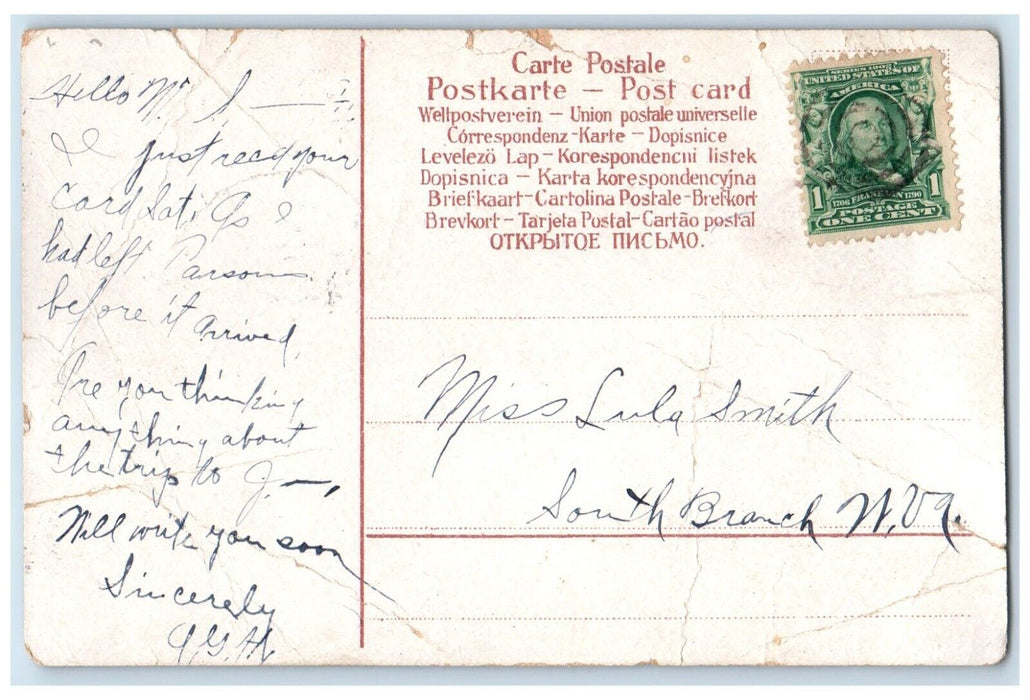 Hello
I just recd your
Card Sat. As I
had left Parsons
before it arrived.
Are you thinking
anything about
the trip to J—,
Will write you soon
Sincerely
Carte Postale
Postkarte – Post card
Weltpostverein – Union postale universelle
Córrespondenz-Karte – Dopisnice
Levelezö Lap – Korespondencni listek
Dopisnica – Karta korespondencyjna
Briefkaart – Cartolina Postale – Brefkort
Brevkort – Tarjeta Postal – Cartão postal
ОТКРЫТОЕ ПИСЬМО.
SERIES 1902
UNITED STATES OF
AMERICA
1706 FRANKLIN 1790
1 POSTAGE 1
ONE CENT
Miss Lula Smith
South Branch W. Va.